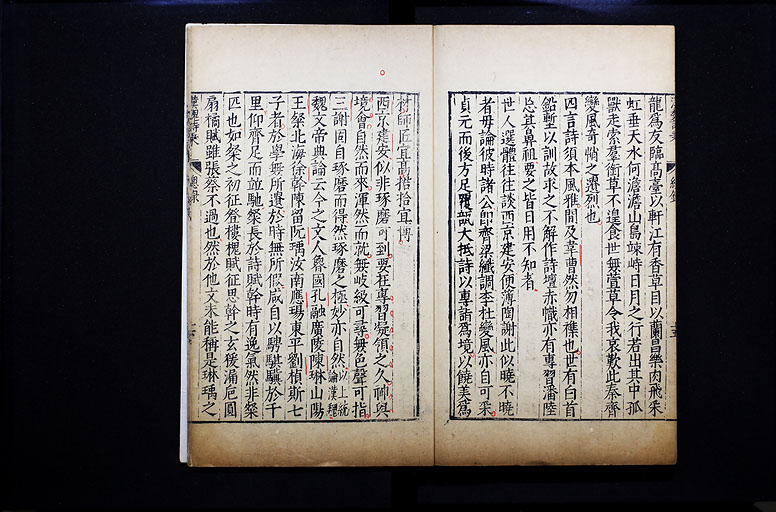 龍爲友臨高臺以軒江有香草目以蘭昌樂肉飛朱
虹垂天水何澹澹山島竦峙日月之行若出其中孤
獸走索羣銜草不遑食世無萱草令我哀歎此秦齊
變風奇悄之遷烈也
四言詩須本風雅間及韋曹然勿相襍也世有白首
鉛塹以訓故求之不解作詩壇赤幟亦有專習潘陸
忘其鼻祖要之皆日用不知者
世人選體往往談西京建安便薄陶謝此似曉不曉
者毋論彼時諸公即齊梁纖調李杜變風亦自可采
貞元而後方足覆瓿大抵詩以專詣爲境以饒美爲
材師匠宜高捃拾宜博
西京建安似非琢磨可到要在專習凝領之久神與
境會自然而來渾然而就無岐級可尋無色聲可指
三謝固自琢磨而得然琢磨之極妙亦自然以上統論漢魏
魏文帝典論云今之文人魯國孔融廣陵陳琳山陽
王粲北海徐幹陳留阮瑀汝南應瑒東平劉楨斯七
子者於學無所遺於時無所假咸自以騁騏驥於千
里仰齊足而竝馳粲長於詩賦幹時有逸氣然非粲
匹也如粲之初征登樓槐賦征思幹之玄猨漏卮圓
扇橘賦雖張蔡不過也然於他文未能稱是琳瑀之